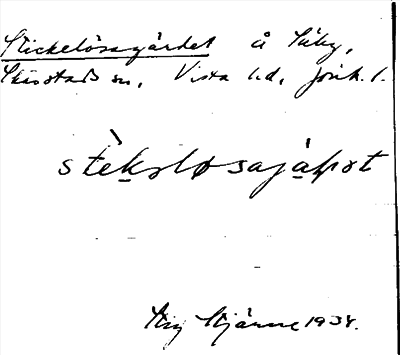 Stickelösagärdet å Säby,
Skärstads sn, Vista hd, Jönk. l.
stèkəløsajáḷət
Stig Hjärne 1938.